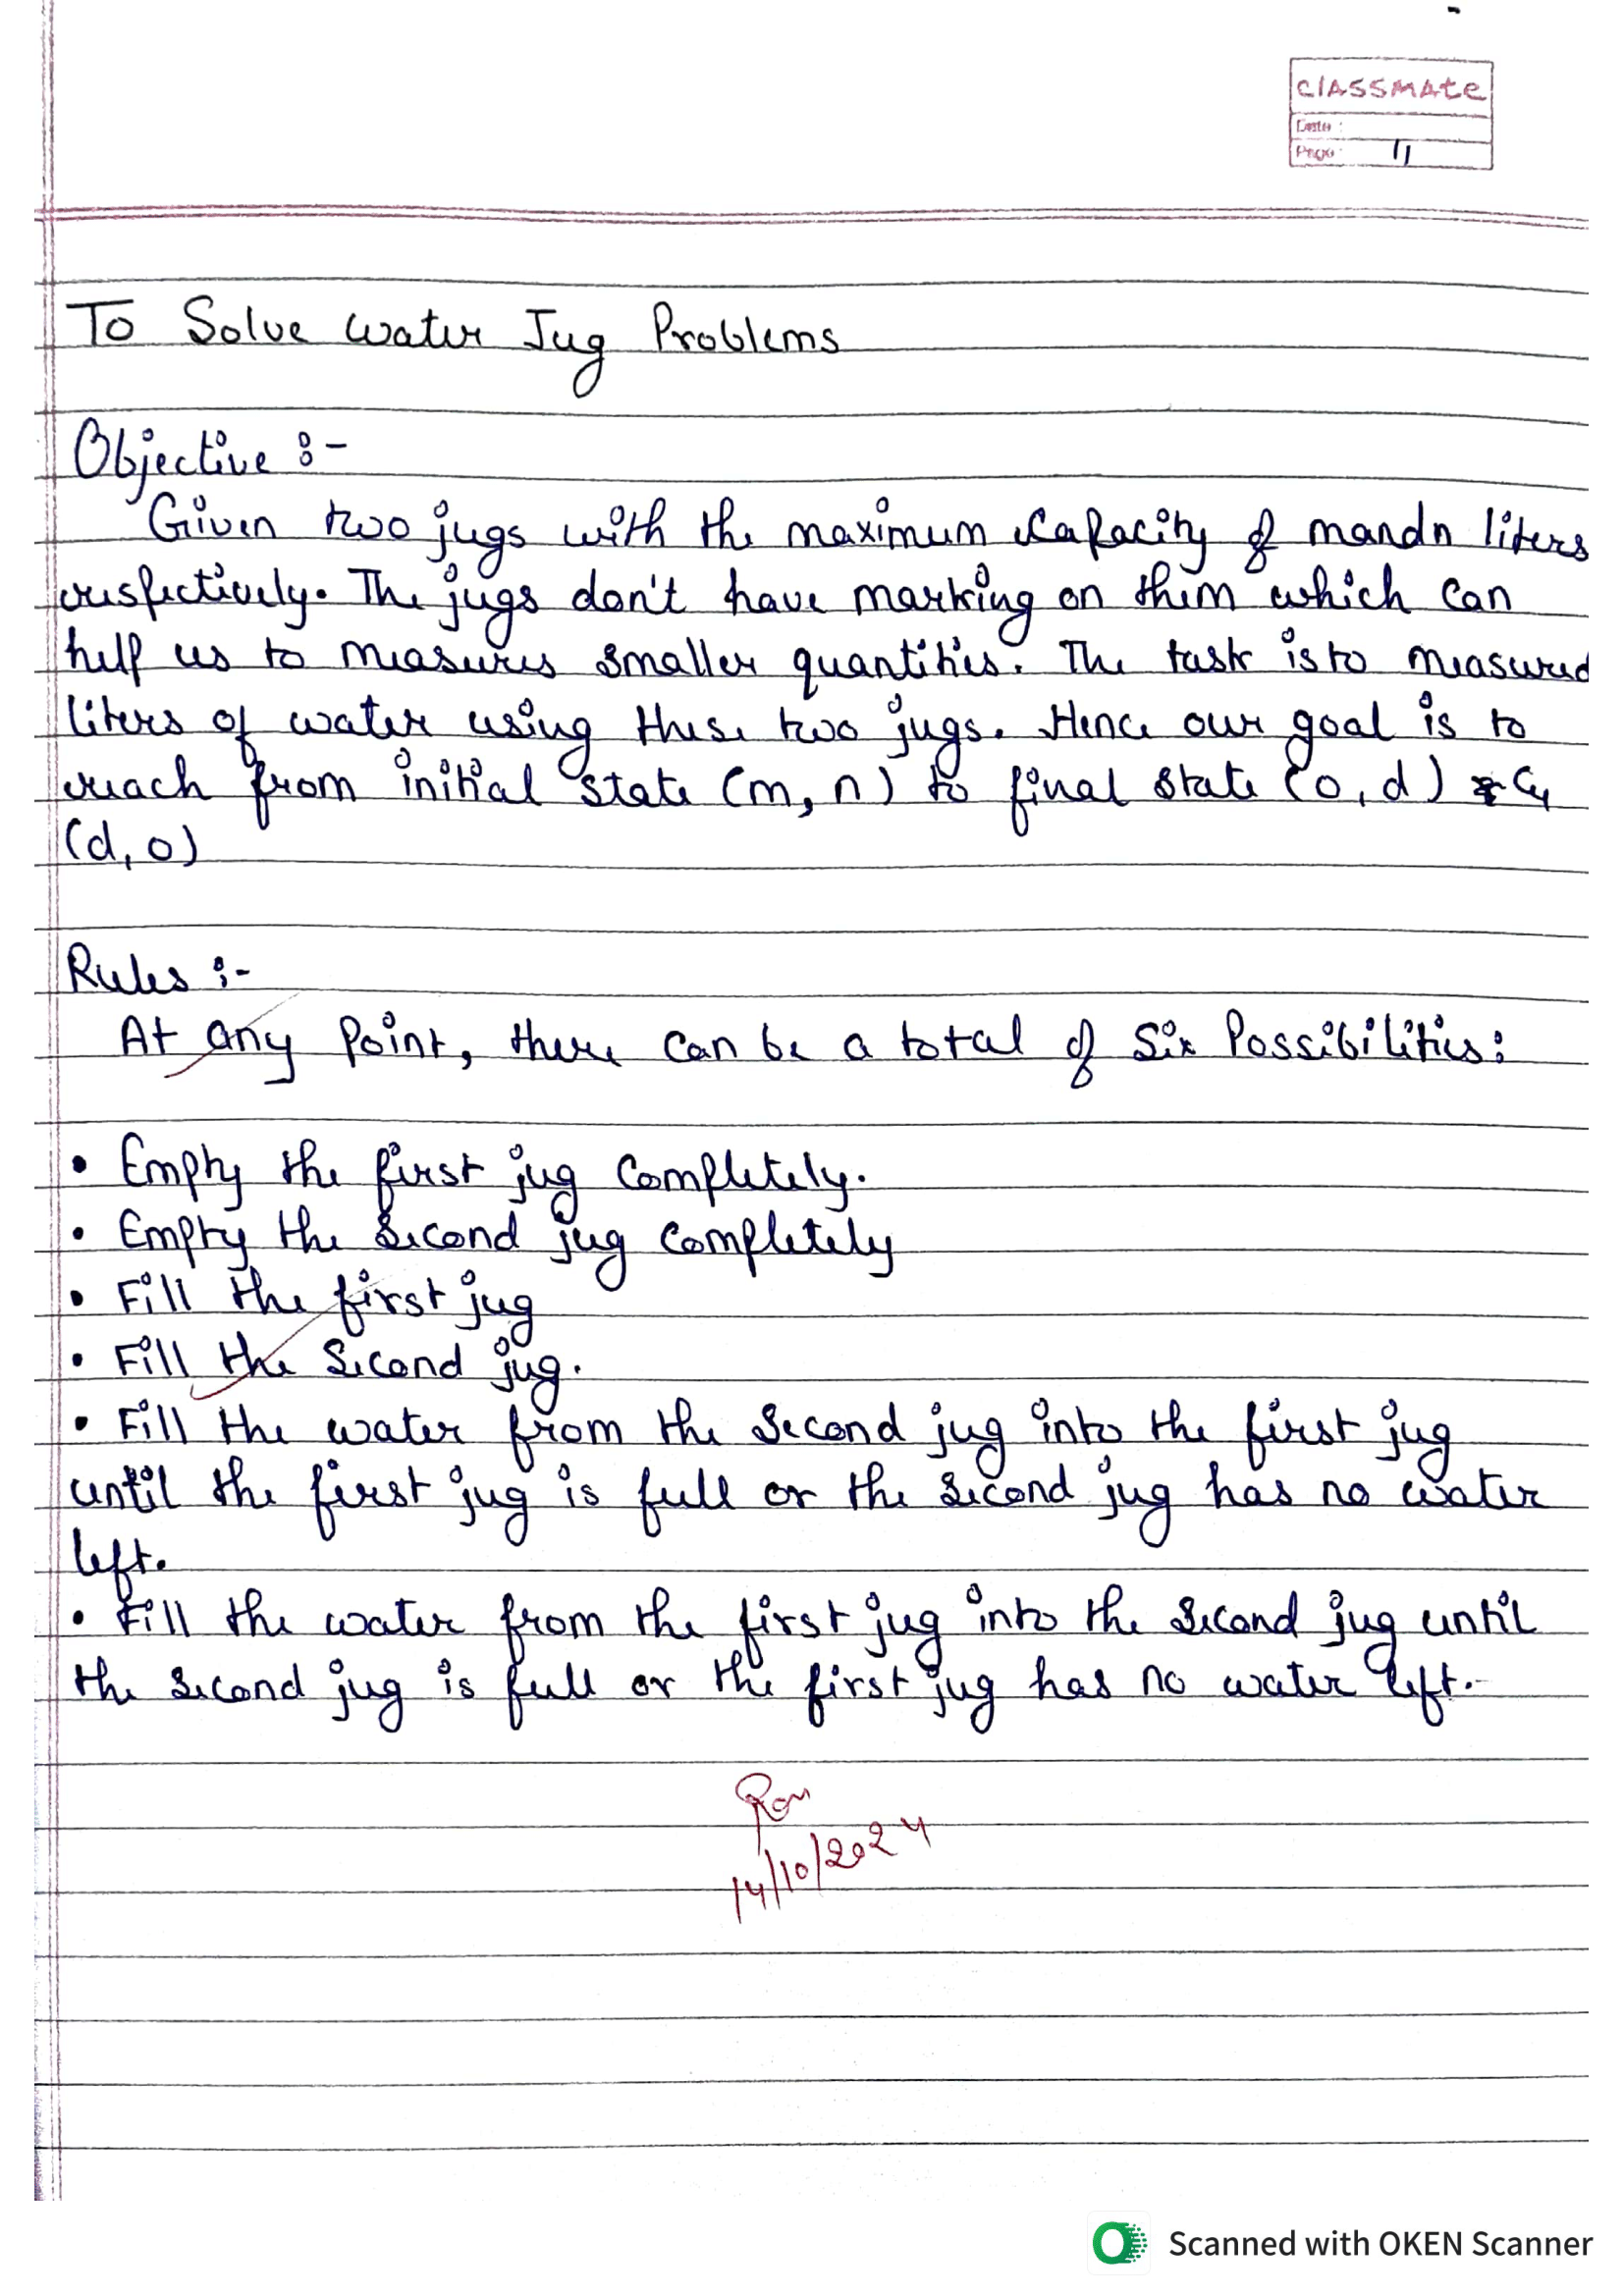 classmate
Date :
Page : 11
To Solve water Jug Problems
Objective :-
Given two jugs with the maximum capacity of m and n liters
respectively. The jugs don't have marking on them which can
help us to measures smaller quantities. The task is to measured
liters of water using these two jugs. Hence our goal is to
reach from initial state (m, n) to final state (0, d)
(d, 0)
Rules :-
At any Point, there can be a total of Six Possibilities:
• Empty the first jug Completely.
• Empty the Second jug Completely
• Fill the first jug
• Fill the Second jug.
• Fill the water from the Second jug into the first jug
until the first jug is full or the Second jug has no water
left.
• Fill the water from the first jug into the second jug until
the second jug is full or the first jug has no water left.
14/10/2024
Scanned with OKEN Scanner